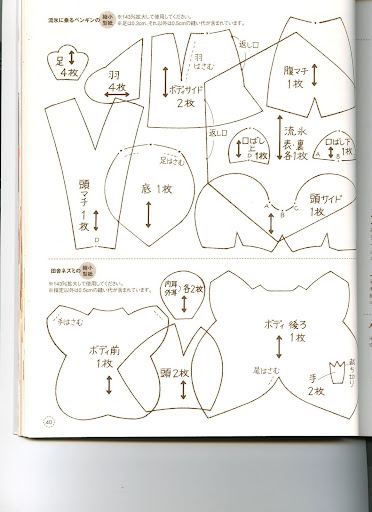 流氷に乗るペンギンの 縮小型紙
※143%拡大して使用してください。
※足は0.3cm、それ以外は0.5cmの縫い代が含まれています。
足
4枚
羽
4枚
羽
はさむ
ボディサイド
2枚
返し口
腹マチ
1枚
返し口
口ばし
上
1枚
D
流氷
表・裏
各1枚
口ばし下
1枚
A
B
頭
マチ
1枚
D
足はさむ
底 1枚
頭サイド
1枚
A
B
C
田舎ネズミの 縮小型紙
※143%拡大して使用してください。
※指定以外は0.5cmの縫い代が含まれています。
内耳
外耳
各2枚
手はさむ
ボディ前
1枚
頭2枚
ボディ後ろ
1枚
尾はさむ
手
2枚
裁ち切り
40